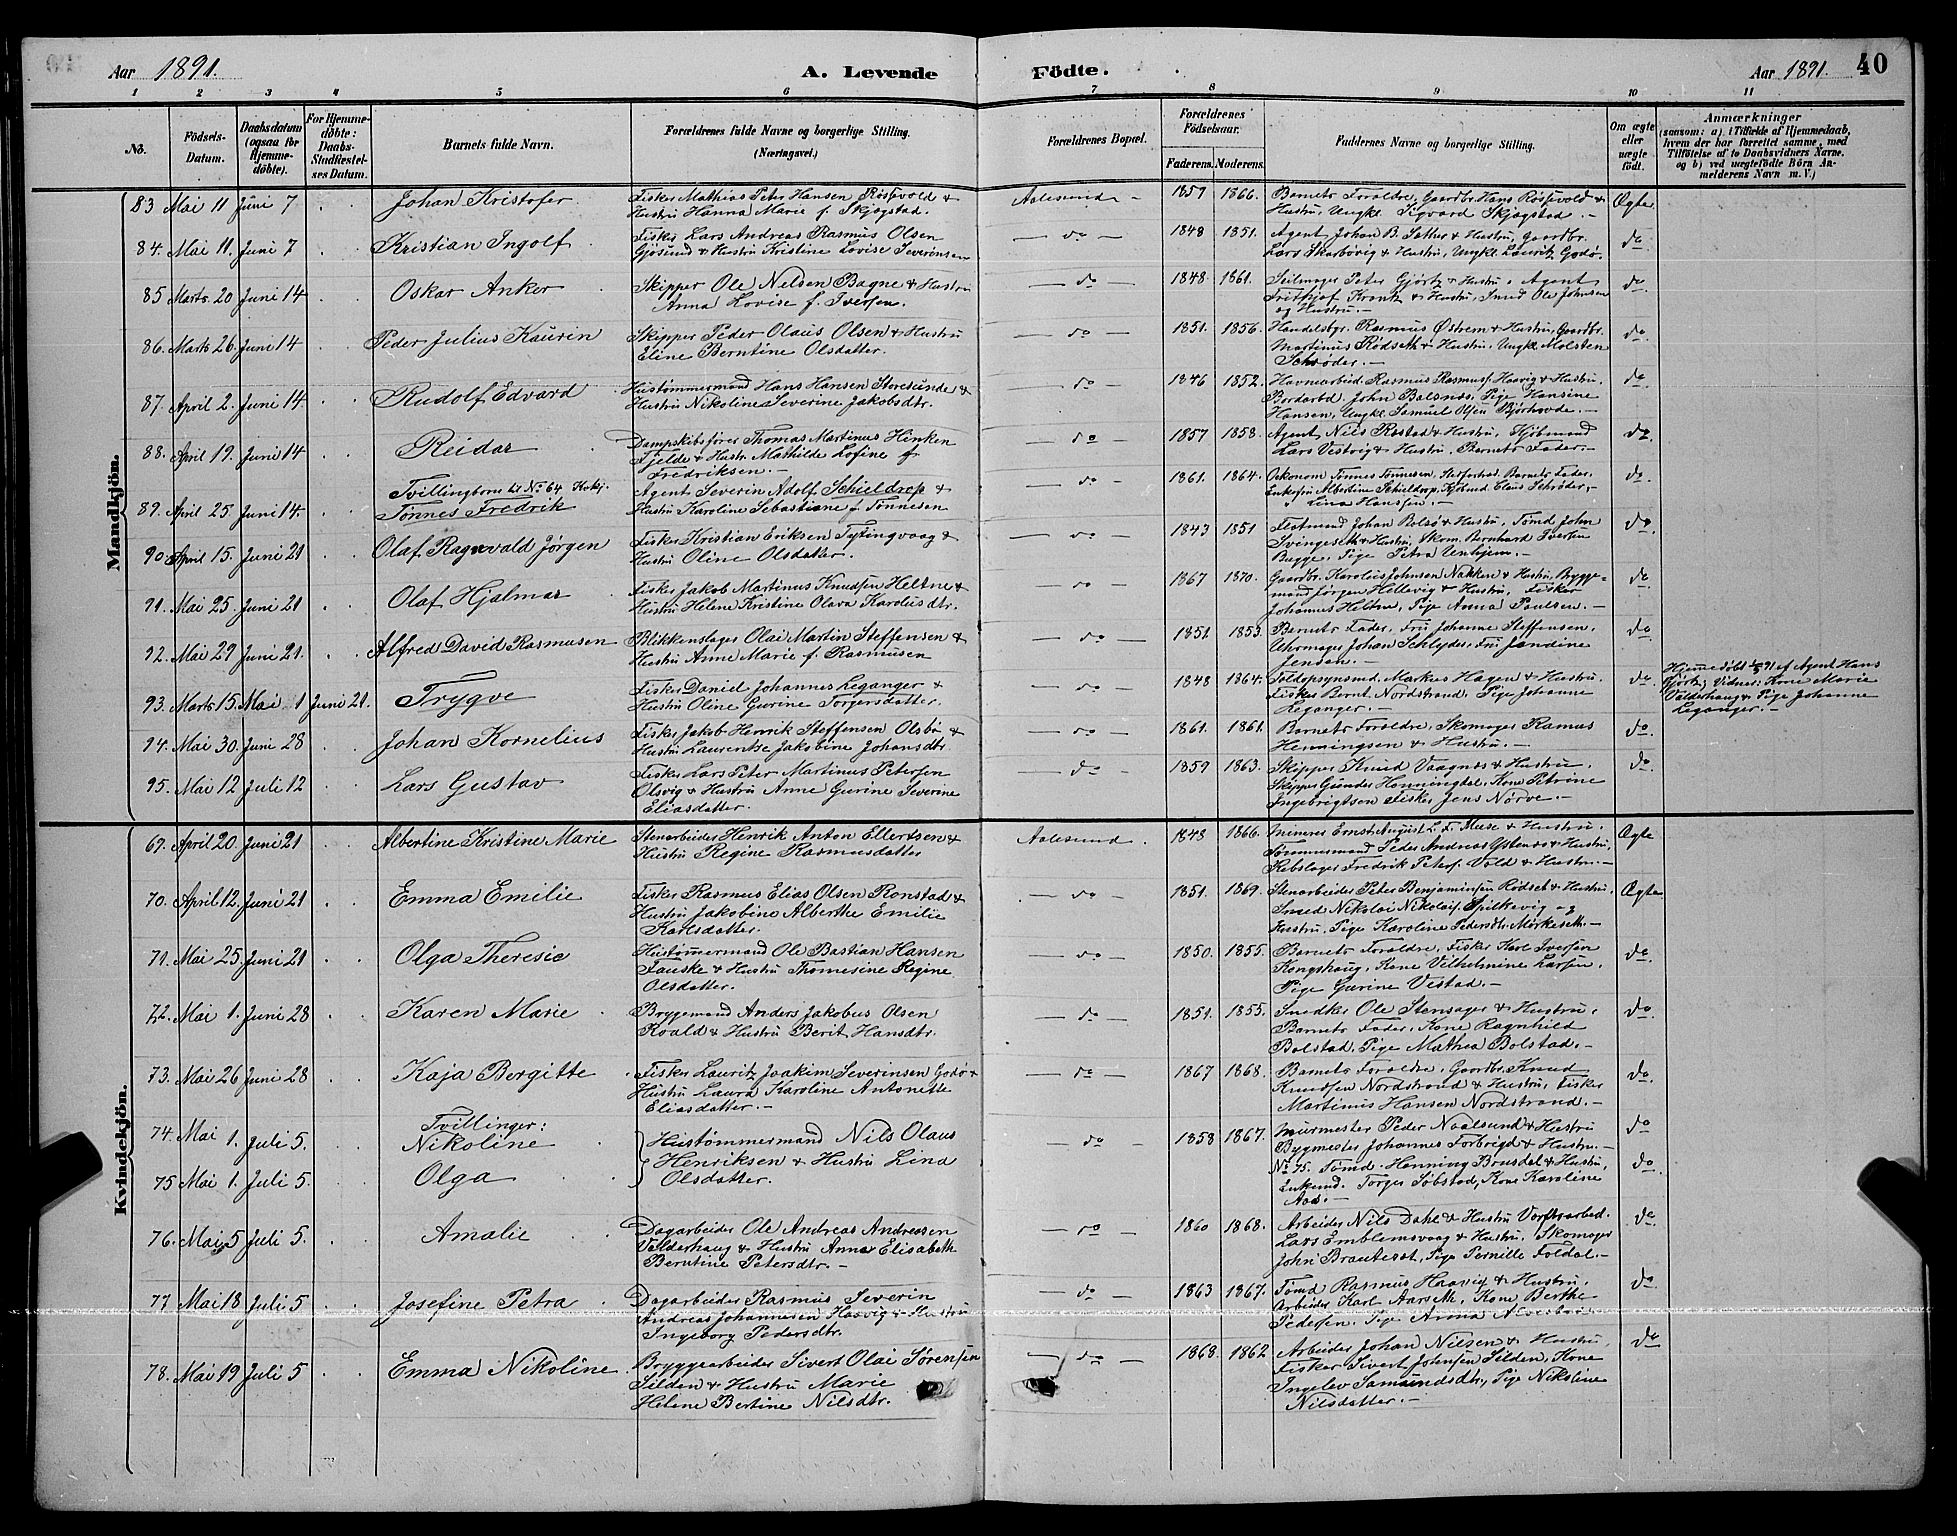 Aar 1891. A. Levende Födte. Aar 1891. 40
1 2 3 4 5 6 7 8 9 10 11
No.
Födsels-Datum.
Daabsdatum (ogsaa for Hjemme-döbte).
For Hjemme-döbte: Daabs-Stadfæstel-ses Datum.
Barnets fulde Navn.
Forældrenes fulde Navne og borgerlige Stilling. (Næringsvei.)
Forældrenes Bopæl.
Forældrenes Födselsaar.
Faderens. Moderens.
Faddernes Navne og borgerlige Stilling.
Om ægte eller uægte födt.
Anmærkninger
(saasom: a) i Tilfælde af Hjemmedaab, hvem der har forrettet samme, med Tilföielse af to Daabsvidners Navne, og b) ved uægtefödte Börn An-melderens Navn m. V.)
Mandkjön.
83 Mai 11 Juni 7 Johan Kristofer
Fisker Mathias Peter Hansen Rössevold &
Hustru Hanna Marie f. Skjøgstad.
Aalesund 1857 1866.
Barnets Forældre, Gaardbr. Hans Røssevold &
Hustru, Ungkl. Sigvard Skjøgstad. Ægte
84. Mai 11. Juni 7 Kristian Ingolf
Fisker Lars Andreas Rasmus Olsen
Gjøsund & Hustru Kristine Lovise Severinsen
do 1848 1851.
Agent Johan B. Sæther & Hustru, Gaardbr.
Lars Skarbøvig & Hustru, Ungkl. Lauritz Godø. do
85 Marts 20 Juni 14 Oskar Anker
Skipper Ole Nelsen Bagne & Hustru
Anna Lovise f. Iversen.
do 1848. 1861.
Seilmager Peter Gjørtz & Hustru, Agent
Frithjof Krantz & Hustru, Smed Ole Johnsen
og Hustru. do
86. Marts 26. Juni 14 Peder Julius Kaurin
Skipper Peder Olaus Olsen & Hustru
Eline Berntine Olsdatter.
do 1851. 1856.
Handelsbgr. Rasmus Østrem & Hustru, Gaardbr.
Martinus Rødseth & Hustru, Ungkl. Molsten
Schrøder. do
87. April 2. Juni 14. Rudolf Edvard
Hustømmermand Hans Hansen Storesunde &
Hustru Nikoline Severine Jakobsdtr.
do 1846 1852.
Havnearbeid. Rasmus Rasmusf. Haavig & Hustru,
Bordarbd. John Balsnæs, Pige Hansine
Hansen, Ungkl. Samuel Olsen Bjørhovde. do
88. April 19. Juni 14 Reidar
Dampskibsfører Thomas Martinus Hinken
Fjelde & Hustr. Mathilde Lofine f.
Fredriksen.
do 1857 1858.
Agent Nils Rostad & Hustru, Kjøbmand
Lars Vestvig & Hustru, Barnets Fader. do
Tvillingbarn til No 64 Kvkj.
89. April 25 Juni 14. Tønnes Fredrik
Agent Severin Adolf Schieldrop &
Hustru Karoline Sebastiane f. Tønnesen
do 1861. 1864.
Oekonom Tønnes Tønnesen, Barnets Fader,
Enkefru Albertine Schieldrop, Kjøbmd. Claus Schrøder,
Lina Hanssen. do
90 April 15. Juni 21 Olaf Ragnvald Jørgen
Fisker Kristian Eriksen Tytingvaag &
Hustru Oline Olsdatter.
do 1843 1851
Flotmand Johan Bolsø & Hustru, Tømd John
Svingeseth & Hustru, Skom. Bernhard Iversen
Bugge, Pige Petra Unhjem. do
91. Mai 25 Juni 21 Olaf Hjalmar
Fisker Jakob Martinus Knudsen Heltne &
Hustru Helene Kristine Olava Karolusdtr.
do 1867 1870.
Gaardbr. Karolus Johnsen Nakken & Hustru, Brygge-
mand Jørgen Hellevig & Hustru, Fisker
Johannes Heltne, Pige Anna Paulsen. do
92. Mai 29 Juni 21. Alfred David Rasmusen
Blikkenslager Olai Martin Steffensen &
Hustru Anne Marie f. Rasmusen
do 1851 1853.
Barnets Fader, Fru Johanne Steffensen,
Uhrmager Johan Schlyder, Fru Jendine
Jensen. do
93. Marts 15. Mai 1 Juni 21. Trygve
Fisker Daniel Johannes Leganger &
Hustru Oline Gurine Torgersdatter.
do 1848 1864.
Toldopsynsmd. Markus Hagen & Hustru,
Fisker Bernt Nordstrand, Pige Johanne
Leganger. do
Hjemmedøbt 1/5 91 af Agent Hans
Gjørtz, Vidner: Kone Marie
Valderhaug & Pige Johanne
Leganger.
94. Mai 30. Juni 28 Johan Kornelius
Fisker Jakob Henrik Steffensen Olsbø &
Hustru Laurentse Jakobine Johansdtr.
do 1861. 1861.
Barnets Forældre, Skomager Rasmus
Henningsen & Hustru. do
95. Mai 12 Juli 12 Lars Gustav
Fisker Lars Peter Martinus Petersen
Olsvig & Hustru Anne Gurine Severine
Eliasdatter.
do 1859 1863.
Skipper Knud Vaagnæs & Hustru,
Skipper Gunder Honningdal, Kone Petrine
Ingebrigtsen Fisker Jens Nørve. do
Kvindekjön.
69. April 20. Juni 21 Albertine Kristine Marie
Stenarbeider Henrik Anton Ellertsen &
Hustru Regine Rasmusdatter
Aalesund. 1848 1866.
Minerer Ernst August L. F. Muse & Hustru.
Tømmermand Peder Andreas Ystenæs & Hustru,
Rebslager Fredrik Petersf. Vold & Hustru. Ægte
70. April 12. Juni 21 Emma Emilie
Fisker Rasmus Elias Olsen Ronstad &
Hustru Jakobine Alberthe Emilie
Karlsdatter.
do 1851. 1869.
Stenarbeider Peter Benjaminsen Rødset & Hustru,
Smed Nikolai Nikolaif. Spilkevig og
Hustru, Pige Karoline Pedersdtr. Mørkeseth. Ægte
71. Mai 25. Juni 21 Olga Theresie
Hustømmermand Ole Bastian Hansen
Fauske & Hustru Thomesine Regine
Olsdatter.
do 1850. 1855.
Barnets Forældre, Fisker Karl Iversen
Kongshaug, Kone Vilhelmine Larsen,
Pige Gurine Vestad. do
72. Mai 1. Juni 28 Karen Marie
Bryggemand Anders Jakobus Olsen
Roald & Hustru Berit Hansdtr.
do 1851. 1855.
Snedker Ole Stensager & Hustru,
Barnets Fader, Kone Ragnhild
Bolstad, Pige Mathea Bolstad. do
73. Mai 26 Juni 28 Kaja Bergitte
Fisker Lauritz Joakim Severinsen Godø &
Hustru Laura Karoline Antonette
Eliasdatter.
do 1867 1868.
Barnets Forældre, Gaardbr. Knud
Knudsen Nordstrand & Hustru, Fisker
Martinus Hansen Nordstrand. do
Tvillinger:
74. Mai 1. Juli 5. Nikoline
75 Mai 1. Juli 5. Olga
Hustømmermand Nils Olaus
Henriksen & Hustru Lina
Olsdatter.
do 1858 1867.
Murmester Peder Naalsund & Hustru
Bygmester Johannes Forbrigd & Hustru. do
No 75. Tømd. Henning Brusdal & Hustru,
Enkemd. Torger Søbstad, Kone Karoline
Aas. do
76. Mai 5 Juli 5. Amalie
Dagarbeider Ole Andreas Andreasen
Valderhaug & Hustru Anna Elisabeth
Berntine Petersdtr.
do 1860 1868.
Arbeider Nils Dahl & Hustru Værftsarbed.
Lars Emblemsvaag & Hustru, Skomager
John Brauteset, Pige Pernille Foldal. do
77 Mai 18 Juli 5 Josefine Petra
Dagarbeider Rasmus Severin
Andreas Johannesen Haavig & Hustru
Ingeborg Pedersdtr.
do 1863 1867.
Tømd Rasmus Haavig & Hustru,
Arbeider Karl Aarseth, Kone Berthe
Pedersen, Pige Anna do
78. Mai 19 Juli 5 Emma Nikoline
Bryggearbeider Sivert Olai Sørensen
Silden & Hustru Marie
Helene Bertine Nilsdtr.
do 1868. 1862
Arbeider Johan Nilsen & Hustru
Fisker Sivert Johnsen Silden, Kone
Ingelev Samundsdtr., Pige Nikoline
Nilsdatter. do